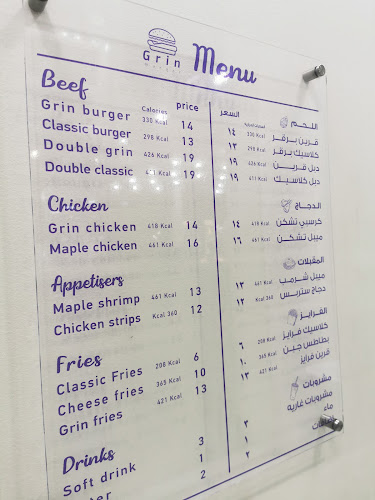 Grin
Menu
Beef
Calories price
Grin burger 330 Kcal 14
Classic burger 298 Kcal 13
Double grin 426 Kcal 19
Double classic Kcal 19
Chicken
Grin chicken 418 Kcal 14
Maple chicken 461 Kcal 16
Appetisers
Maple shrimp 461 Kcal 13
Chicken strips Kcal 360 12
Fries
Classic Fries 208 Kcal 6
Cheese fries 365 Kcal 10
Grin fries 421 Kcal 13
Drinks
Soft drink 3
1
2
السعر
اللحم
قرين برقر 330 Kcal ١٤
كلاسيك برقر 298 Kcal ١٣
دبل قرين 426 Kcal ١٩
دبل كلاسيك 411 Kcal ١٩
الدجاج
كرسبي تشكن 418 Kcal ١٤
ميبل تشكن 461 Kcal ١٦
المقبلات
ميبل شرمب 461 Kcal ١٣
دجاج ستربس Kcal 360 ١٢
الفرايز
كلاسيك فرايز 208 Kcal ٦
بطاطس جبن 365 Kcal ١٠
قرين فرايز 421 Kcal ١٣
مشروبات
مشروبات غازيه ٣
ماء ١
٢